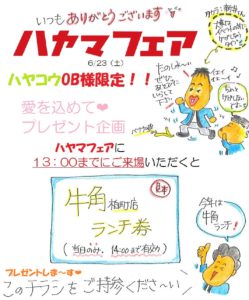 いつもありがとうございます
ハヤマフェア
6/23（土）
ハヤコウOB様限定！！
愛を込めて❤
プレゼント企画
ハヤマフェアに
13：00までにご来場いただくと
見本
牛角 柏町店
ランチ券
（当日のみ、14:00まで有効）
今年は
牛角
ランチ！
プレゼントしま～す❤
このチラシをご持参くださ～い